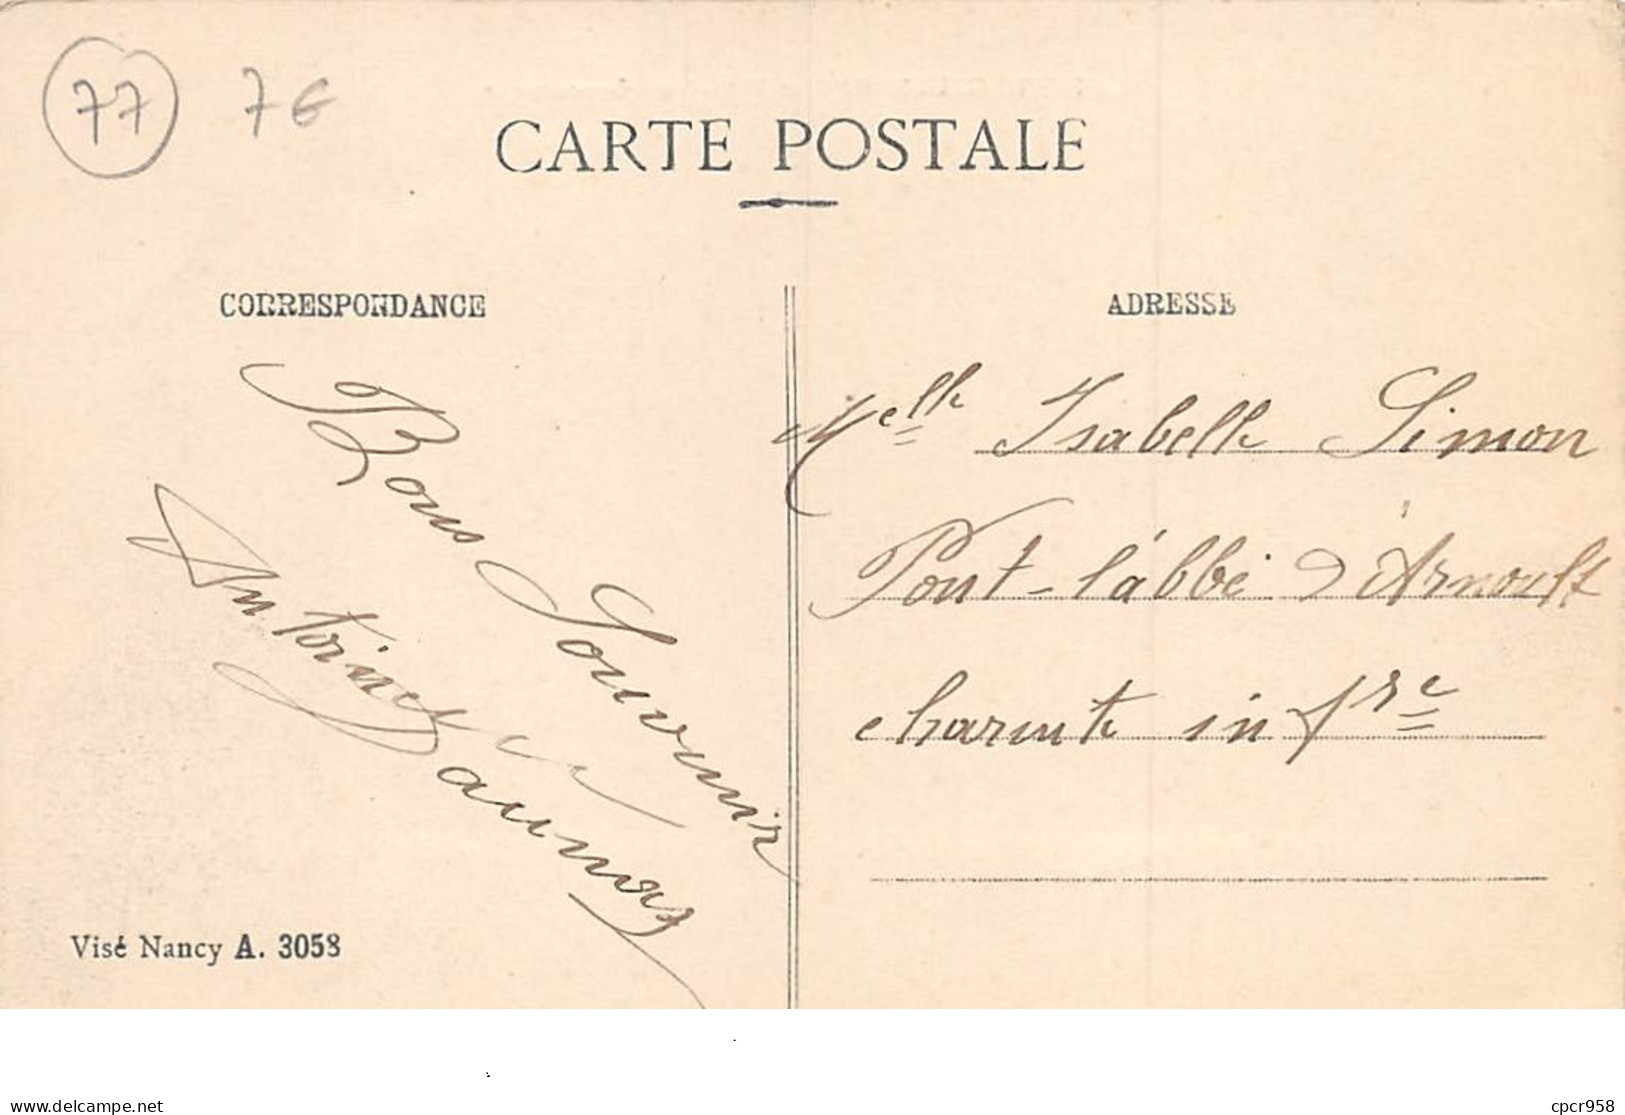 77 7€
CARTE POSTALE
CORRESPONDANCE
ADRESSE
Bons Souvenir
Antoinette
Melle Isabelle Simon
Pont-l'abbé d'Arnoult
charente infre
Visé Nancy A. 3058
www.delcampe.net
cpcr958